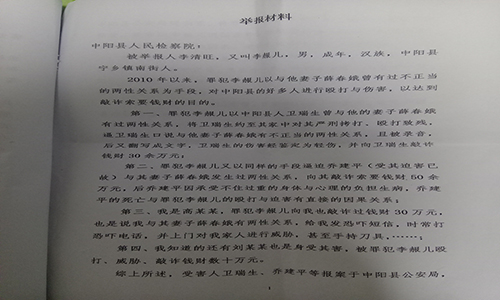 举报材料
中阳县人民检察院:
被举报人李清旺,又叫李赧儿,男,成年,汉族,中阳县
宁乡镇南街人。
2010年以来,罪犯李赧儿以与他妻子薛春娥曾有过不正当
的两性关系为手段,对中阳县的好多人进行殴打与伤害,以达到
敲诈索要钱财的目的。
第一、罪犯李赧儿以中阳县人卫瑞生曾与他的妻子薛春娥
有过两性关系,将卫瑞生约至其家中对其严刑拷打、殴打致残,
逼卫瑞生口说与他妻子薛春娥有不正当的两性关系,且被录音,
后又翻写成文字,卫瑞生的伤害经鉴定为轻伤,并向卫瑞生敲诈
钱财30余万元;
第二、罪犯李赧儿又以同样的手段逼迫乔建平(受其迫害已
故)与其妻子薛春娥发生过两性关系,向其敲诈索要钱财50余
万元,后乔建平因承受不住过重的身体与心理的负担生病,乔建
平的死亡与罪犯李赧儿的殴打与迫害有直接的因果关系;
第三、我是高某某,罪犯李赧儿向我也敲诈过钱财30万元,
也是说我与其妻子薛春娥有两性关系,给我发恐吓短信,时常打
恐吓电话,并上门对我家人进行威胁,甚至手持刀具……;
第四、我知道的还有刘某某也是身受其害,被罪犯李赧儿殴
打、威胁、敲诈钱财数十万元。
综上所述,受害人卫瑞生、乔建平等报案于中阳县公安局,
1